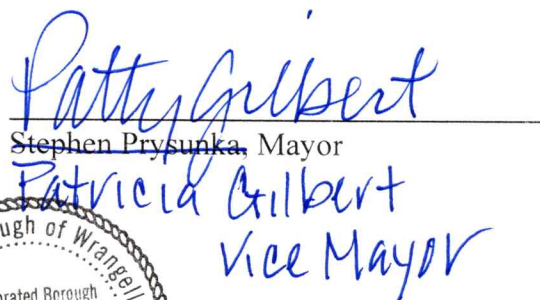 Patty Gilbert
Stephen Prysunka, Mayor
Patricia Gilbert
Vice Mayor
ugh of Wrangell
rated Borough